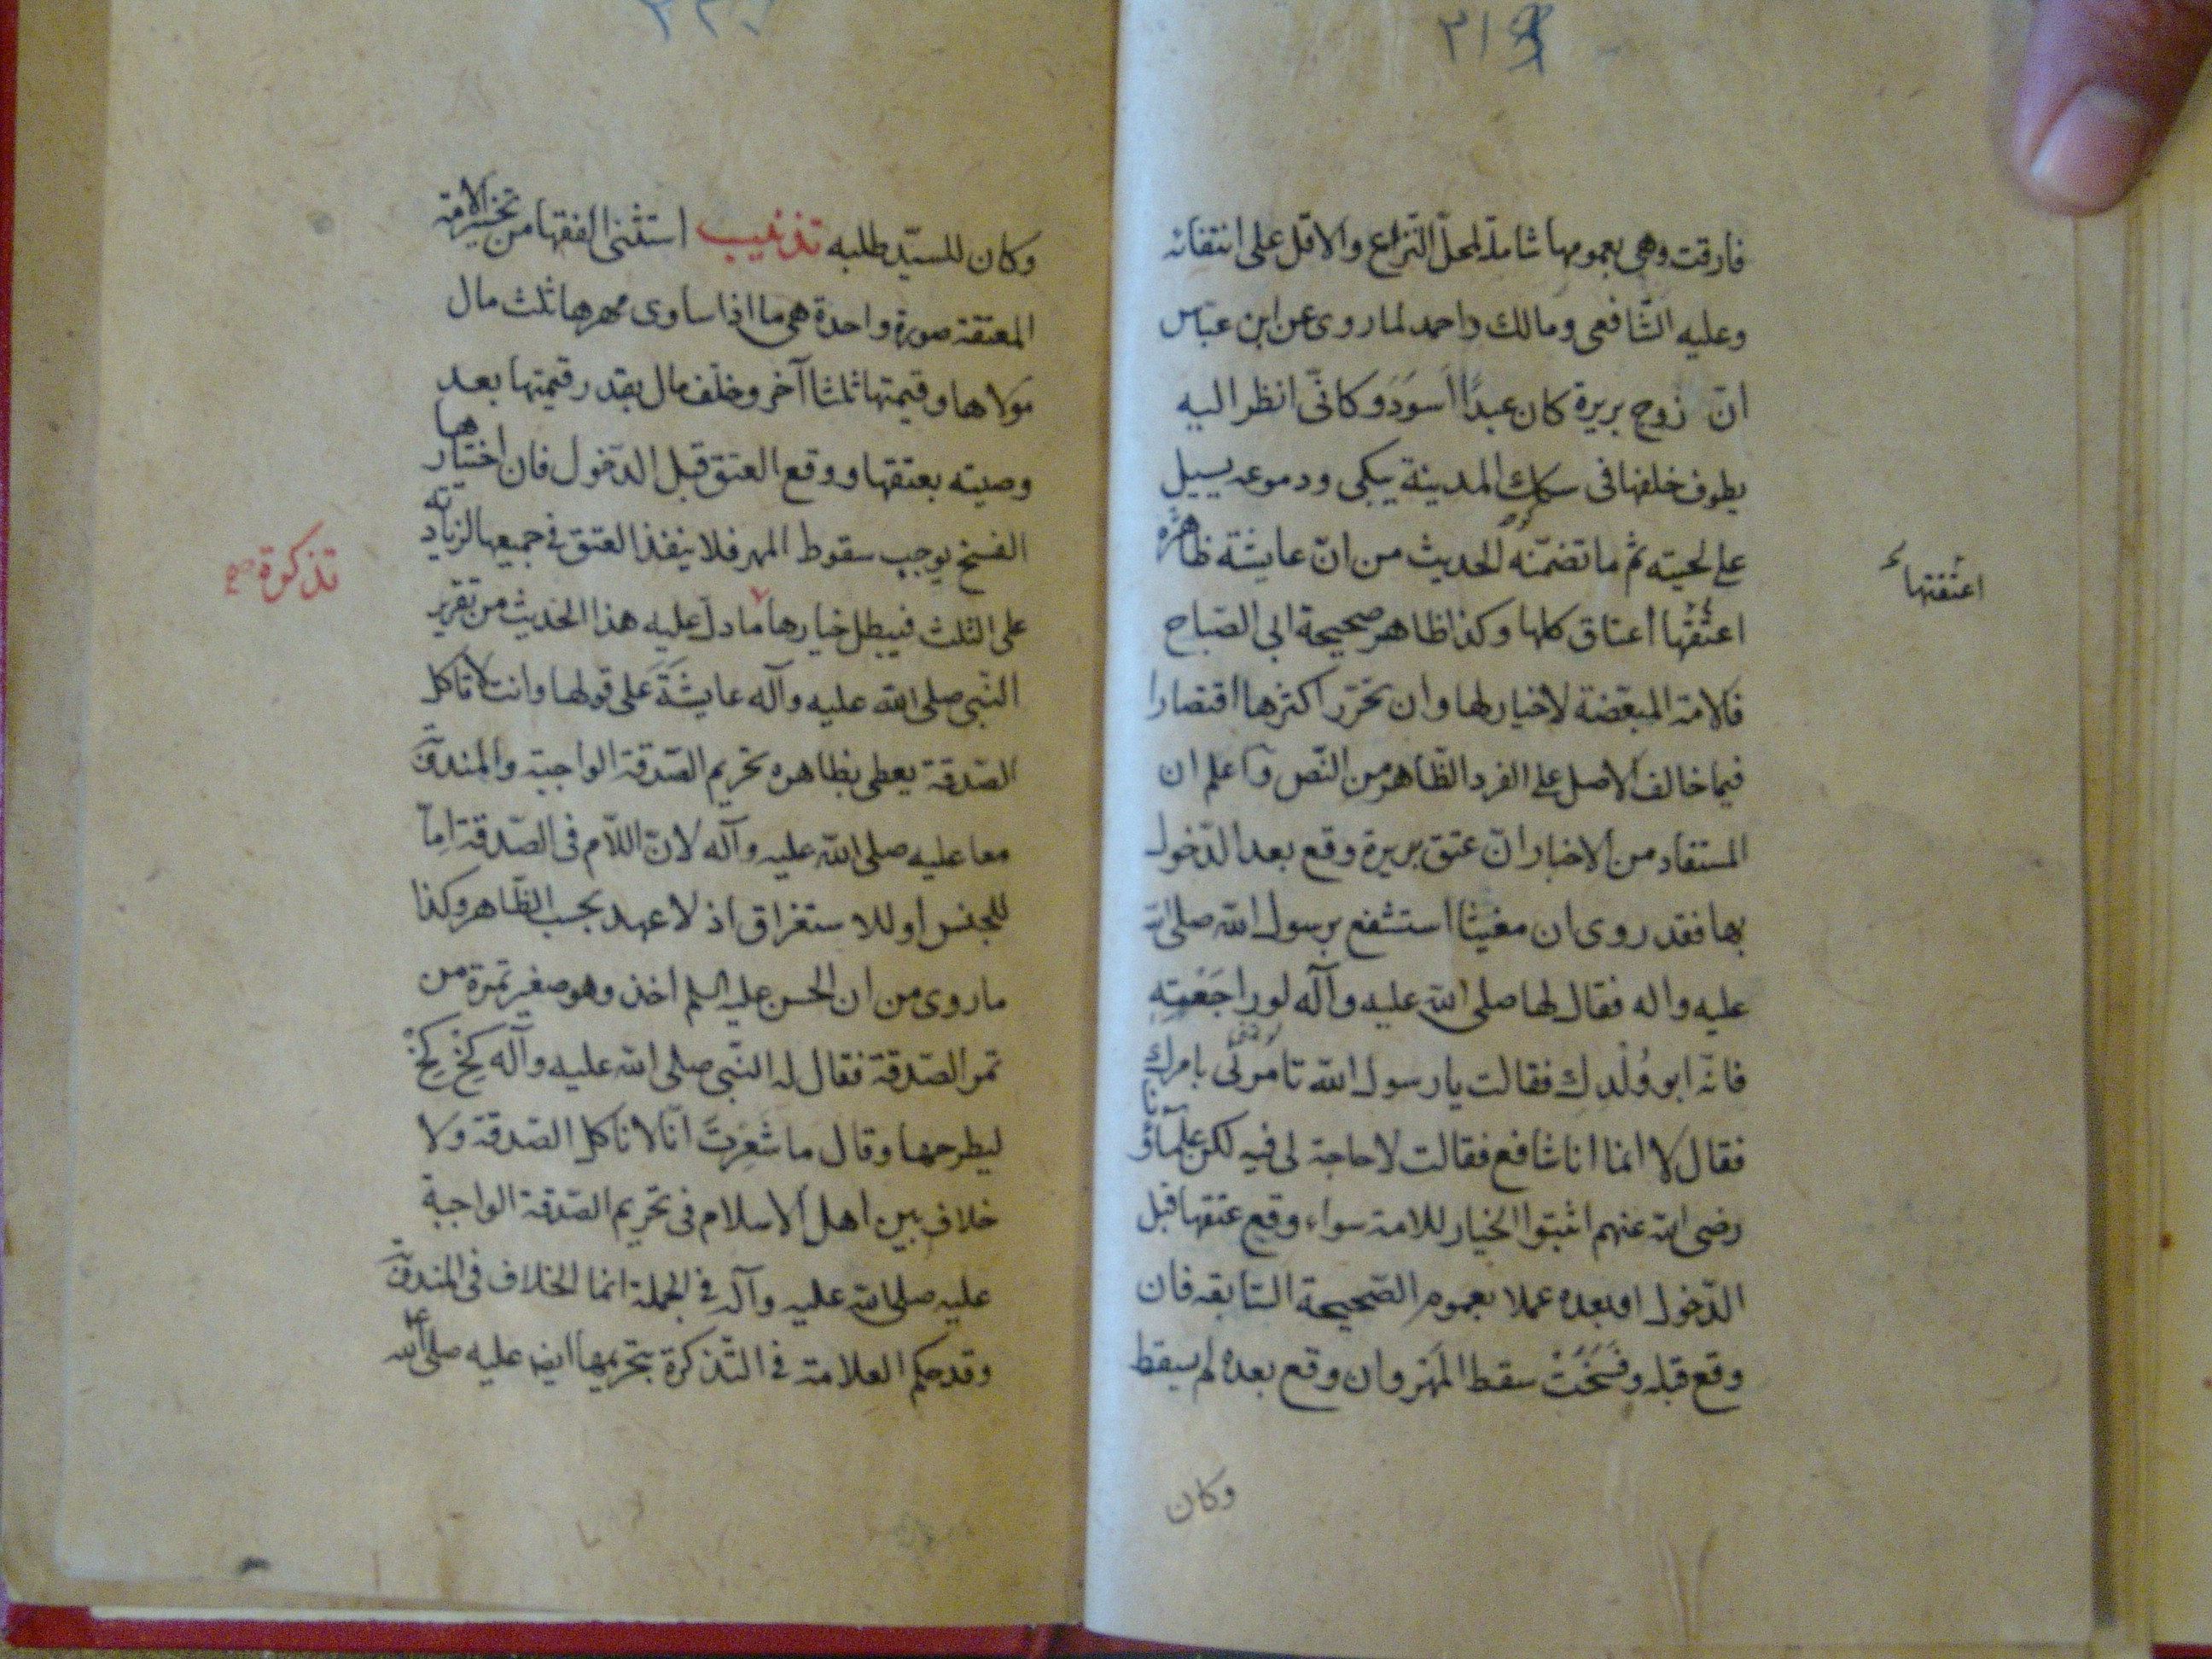 ٣١٩
فارقت وهى بعمومها شاملة لمحلّ النّزاع والاقل على انتفائه
وعليه الشّافعى ومالك واحمد لما روى عن ابن عبّاس
انّ زوج بريرة كان عبدًا اَسوَدَ وكانّى انظر اليه
يطوف خلفها فى سكك المدينة يبكى ودموعه يسيل
على لحيته ثم ما تضمّنه الحديث من انّ عايشة ظاهره
اعتقتها
اعتقتها أعتاق كلها وكذا ظاهر صحيحة ابى الصّباح
فالامة المبعّضة لا خيار لها وان تحرّر اكثرها اقتصارا
فيما خالف الاصل على الفرد الظّاهر من النّص واعلم ان
المستفاد من الاخبار انّ عتق بريرة وقع بعد الدّخول
بها فقد روى ان مغيثا استشفع برسول الله صلى الله
عليه واله فقال لها صلى الله عليه وآله لو راجَعْتِهِ
فانّه ابو وُلْدك فقالت يا رسول الله تامرنى بامرك
فقال لا انما انا شافع فقالت لا حاجة لى فيه لكن علمآؤنا
رضى الله عنهم اثبتوا الخيار للامة سواء وقع عتقها قبل
الدّخول او بعده عملا بعموم الصّحيحة السّابقه فان
وقع قبله وفَسَخَتْ سقط المَهر وان وقع بعده لم يسقط
وكان
٣٢٠
وكان للسيّد طلبه تذنيب استثنى الفقها من تخيير الامة
المعتقة صورة واحدة هى ما اذا ساوى مهرها ثلث مال
مولاها وقيمتها ثلثا آخر وخلّف مال بقدر قيمتها بعد
وصيته بعتقها ووقع العتق قبل الدّخول فان اختيارها
الفسخ يوجب سقوط المهر فلا ينفذ العتق فى جميعها لزيادته
تذكرة
على الثلث فيبطل خيارها ما دلّ عليه هذا الحديث من تقرير
النّبى صلى الله عليه وآله عايشَةَ على قولها وانت لا تاكل
الصّدقة يعطى بظاهره تحريم الصّدقة الواجبة والمندوبة
معا عليه صلى الله عليه وآله لانّ اللّام فى الصّدقة اِمّا
للجنس او للاستغراق اذ لا عهد بحسب الظّاهر وكذا
ما روى من ان الحسن عليه السلم اخذ وهو صغير تمرة من
تمر الصّدقة فقال له النّبى صلى الله عليه وآله كِخْ كِخْ
ليطرحها وقال ما شَعِرتَ انّا لا ناكل الصّدقة ولا
خلاف بين اهل الاسلام فى تحريم الصّدقة الواجبة
عليه صلى الله عليه وآله فى الجملة انما الخلاف فى المندوبة
وقد حكم العلامة فى التّذكرة بتحريمها ايضا عليه صلى الله عليه